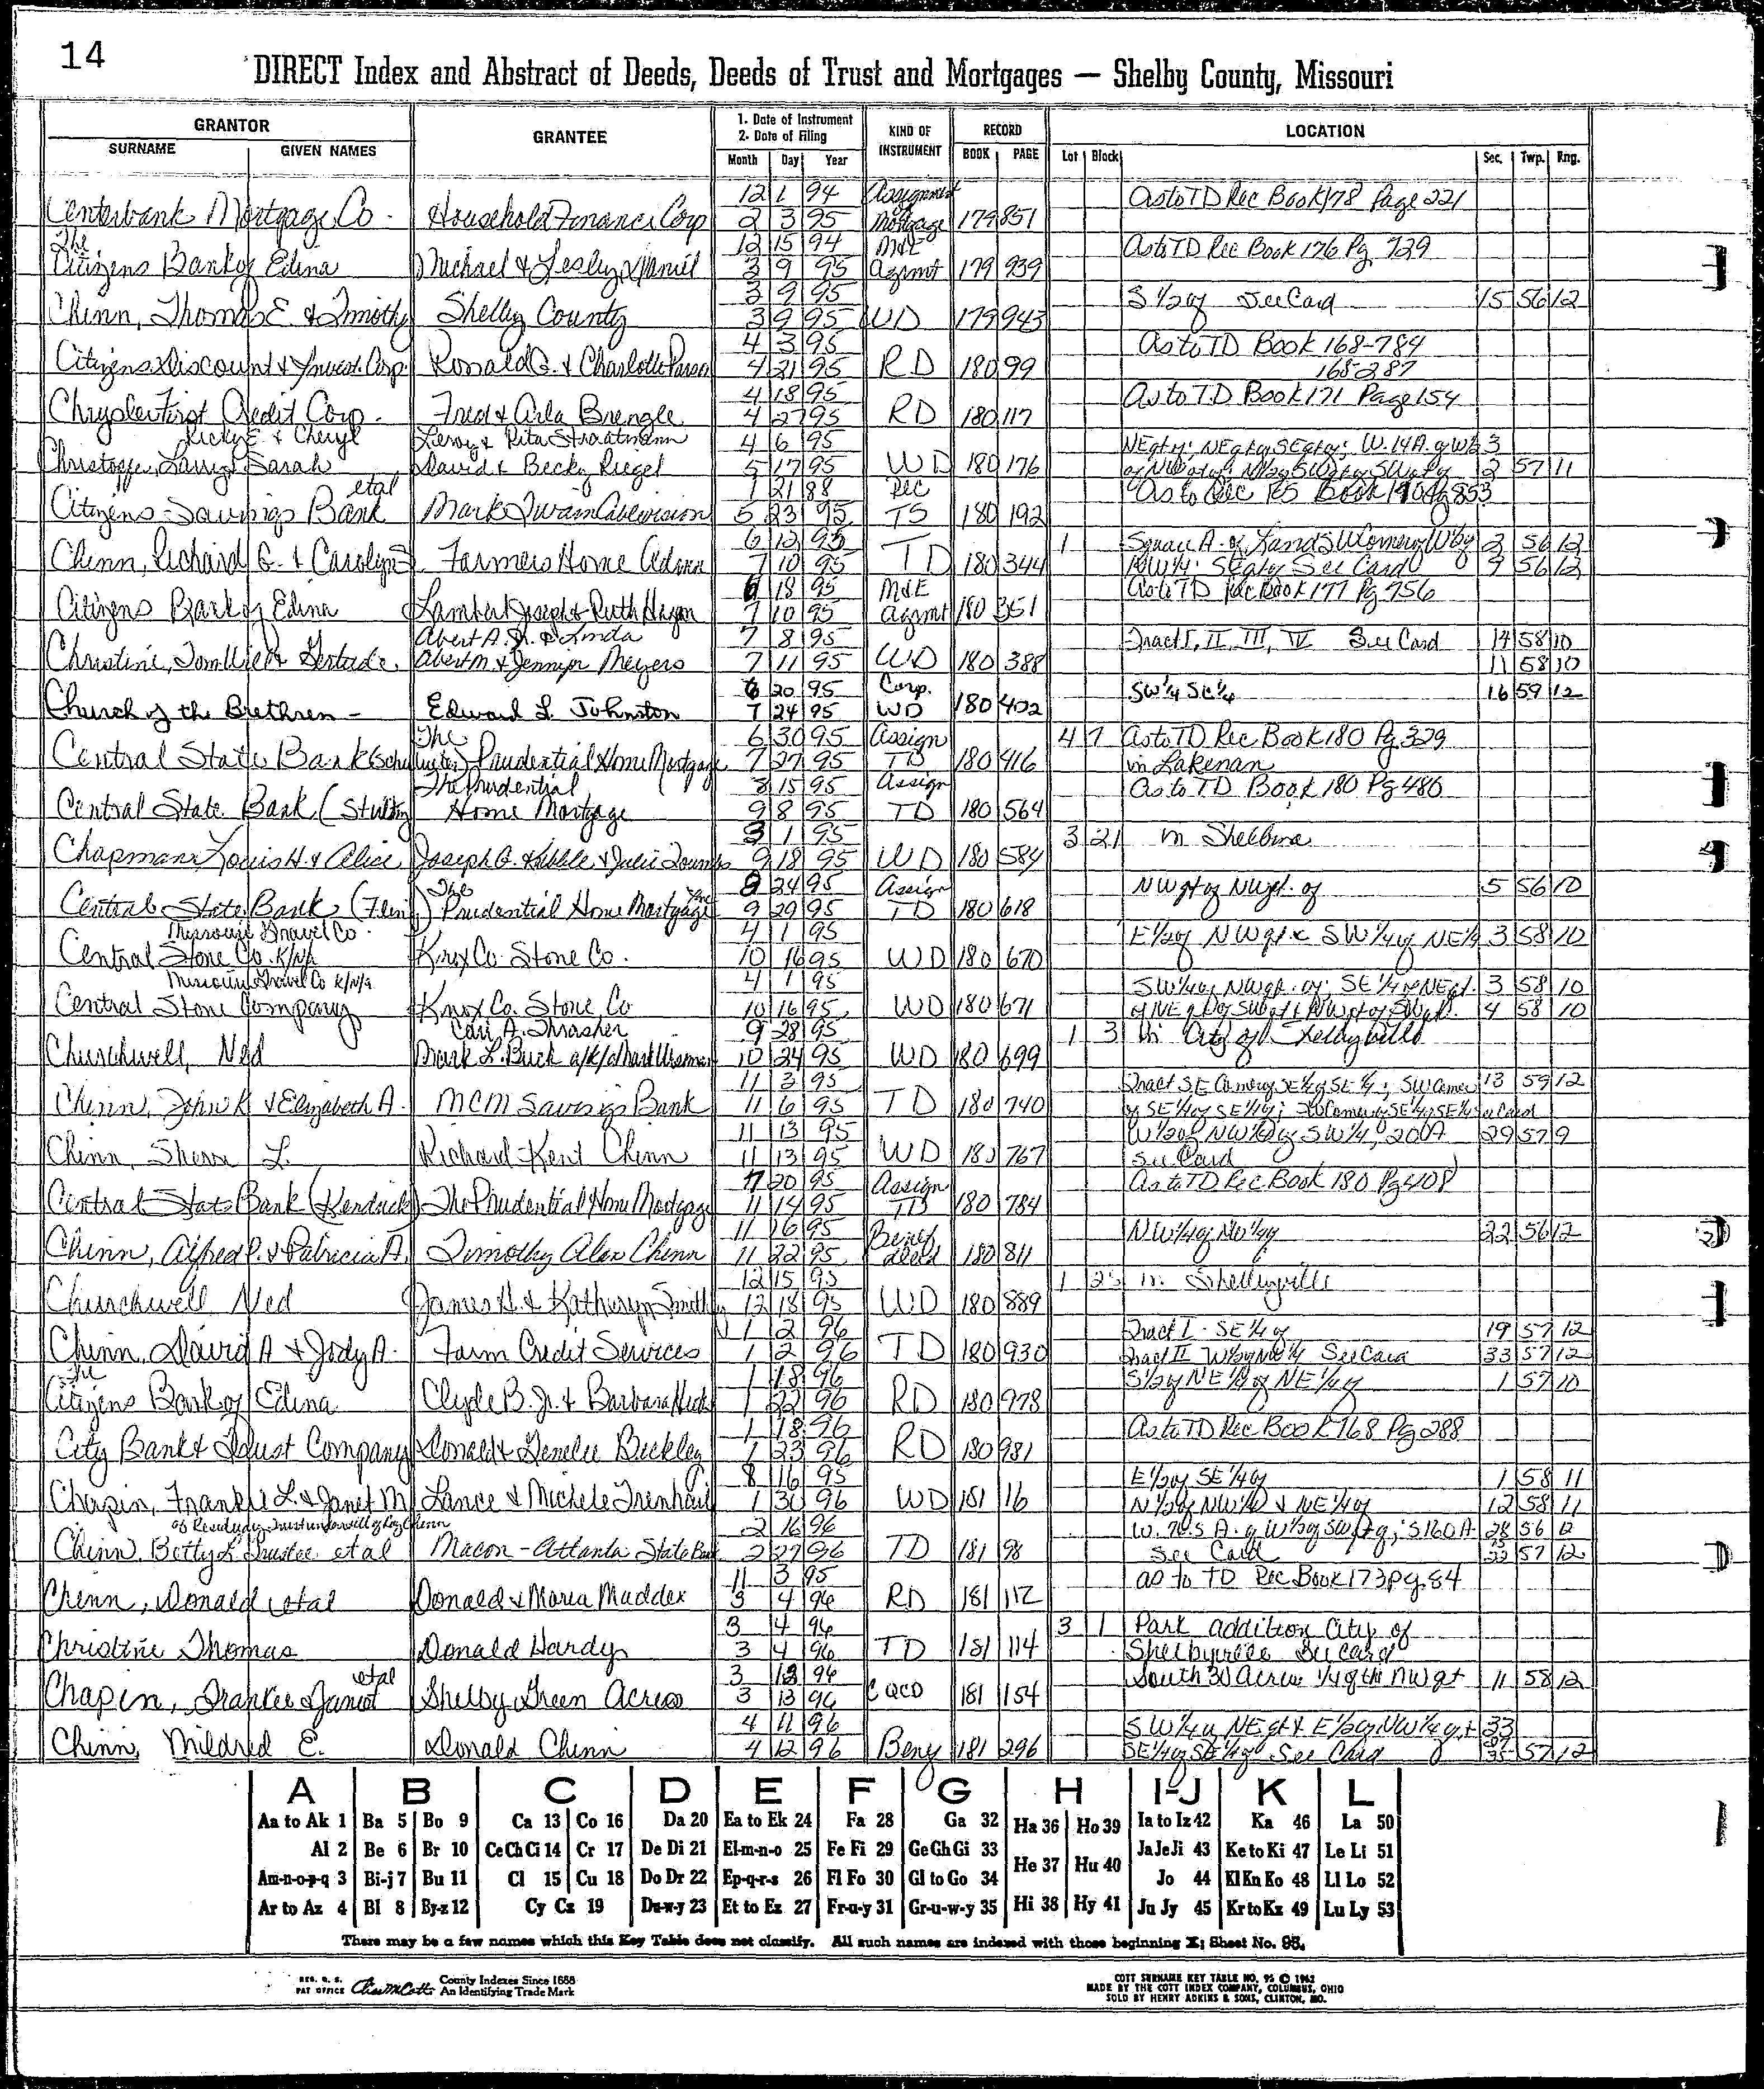 14
DIRECT Index and Abstract of Deeds, Deeds of Trust and Mortgages — Shelby County, Missouri
GRANTOR GRANTEE 1. Date of Instrument 2. Date of Filing KIND OF INSTRUMENT RECORD LOCATION
SURNAME GIVEN NAMES Month Day Year BOOK PAGE Lot Block Sec. Twp. Rng.
12 1 94 Assignment As to TD Rec Book 178 Page 221
Centerbank Mortgage Co. Household Finance Corp 2 3 95 Mortgage 179 851
The 12 15 94 M&E As to TD Rec Book 176 Pg. 729
Citizens Bank of Edina Michael & Lesley 3 9 95 Agrmt 179 939
3 9 95 S 1/2 of See Card 15 56 12
Chinn, Thomas E. & Timothy Shelby County 3 9 95 WD 179 943
4 3 95 As to TD Book 168-784
Citizens Discount & Invest. Corp. Ronald G. & Charlotte 4 21 95 RD 180 99 168-287
4 18 95 As to T.D Book 171 Page 154
Chrysler First Credit Corp. Fred & Arla Brengle 4 27 95 RD 180 117
Ricky E & Cheryl Leroy & Rita Straatmann 4 6 95 NE qtr; NE qtr SE qtr; W. 14A. of W 1/2 3
Sarah David & Becky Riegel 5 17 95 WD 180 176 2 57 11
etal 1 21 88 Rec As to Rec Book Pg 853
Citizens Savings Bank Mark Twain 5 23 95 TS 180 192
6 12 95 1 Square A. of Land 2 56 12
Chinn, Richard G. & Carolyn Farmers Home Admn 7 10 95 TD 180 344 See Card 9 56 12
6 18 95 M&E As to TD Rec Book 177 Pg 756
Citizens Bank of Edina Lambert Joseph & Ruth 7 10 95 Agrmt 180 351
Abert A. Jr. & Linda 7 8 95 Tract I, II, III, IV See Card 14 58 10
Christine, & Gertrude Abert M & Jennifer Meyers 7 11 95 WD 180 388 11 58 10
6 20 95 Corp. SW 1/4 SE 1/4 16 59 12
Church of the Brethren - Edward L. Johnston 7 24 95 WD 180 402
The 6 30 95 Assign 4 7 As to TD Rec Book 180 Pg 329
Central State Bank Prudential Home Mortgage 7 27 95 TD 180 416 in Lakenan
The Prudential 8 15 95 Assign As to TD Book 180 Pg 480
Central State Bank Home Mortgage 9 8 95 TD 180 564
3 1 95 3 21 in Shelbina
Chapman Louis H. & Alice Joseph G. & Julie 9 18 95 WD 180 584
The Inc 8 24 95 Assign NW qt of NW qt. of 5 56 10
Central State Bank Prudential Home Mortgage 9 29 95 TD 180 618
Missouri Gravel Co. 4 1 95 E 1/2 of NW qt & SW 1/4 of NE 1/4 3 58 10
Central Stone Co. K/N/A Knox Co. Stone Co. 10 16 95 WD 180 670
Missouri Gravel Co K/N/A 4 1 95 SW 1/4 of NW qt. of; SE 1/4 of NE qt. 3 58 10
Central Stone Company Knox Co. Stone Co 10 16 95 WD 180 671 4 58 10
Cari A. Thrasher 9 28 95 1 3 in City of Shelbyville
Churchwell, Ned Mark L. Buck a/k/a 10 24 95 WD 180 699
11 3 95 Tract SE Corner of SE 1/4 of SE 1/4; SW Corner 13 59 12
Chinn, John K & Elizabeth A. MCM Savings Bank 11 6 95 TD 180 740 of SE 1/4 of SE 1/4; See Card
11 13 95 W 1/2 of NW 1/4 of SW 1/4, 20A 29 57 9
Chinn, L. Richard Kent Chinn 11 13 95 WD 180 767 See Card
7 20 95 Assign As to TD Rec Book 180 Pg 408
Central State Bank (Kendrick) The Prudential Home Mortgage 11 14 95 TD 180 784
11 16 95 Benef NW 1/4 of NW 1/4 of 22 56 12
Chinn, Alfred P. & Patricia A. Timothy Alan Chinn 11 22 95 deed 180 811
12 15 95 1 in Shelbyville
Churchwell Ned James H. & Katheryn Smith 12 18 95 WD 180 889
1 2 96 Tract I - SE 1/4 of 19 57 12
Chinn, David A & Jody A. Farm Credit Services 1 2 96 TD 180 930 Tract II W 1/2 of NW 1/4 See Card 33 57 12
The 1 18 96 S 1/2 of NE 1/4 of NE 1/4 of 1 57 10
Citizens Bank of Edina Clyde B. Jr. & Barbara 1 22 96 RD 180 978
1 18 96 As to TD Rec Book 168 Pg 288
City Bank & Trust Company Donald & Buckley 1 23 96 RD 180 981
8 16 95 E 1/2 of SE 1/4 of 1 58 11
Chapin, Frankie L. & Janet M Lance & Michele 1 30 96 WD 181 16 N 1/2 of NW 1/4 & NE 1/4 of 12 58 11
of Residuary Trust under will of Roy Chinn 2 16 96 28 56 12
Chinn, Betty L. Trustee etal Macon-Atlanta State Bank 2 27 96 TD 181 98 See Card 57 12
11 3 95 as to TD Rec Book 173 pg. 84
Chinn, Donald etal Donald & Maria Maddex 3 4 96 RD 181 112
3 4 96 3 1 Park addition City of
Christine Thomas Donald Hardy 3 4 96 TD 181 114 Shelbyville See card
etal 3 13 96 South 30 Acres 1/4 of the NW qt 11 58 12
Chapin, Frankie & Janet Shelby Green Acres 3 13 96 C QCD 181 154
4 11 96 SW 1/4 of NE qt & E 1/2 of NW 1/4 of, + 33
Chinn, Mildred E. Donald Chinn 4 12 96 181 296 SE 1/4 of SE 1/4 of See Card 57 12
A B C D E F G H I-J K L
Aa to Ak 1 Ba 5 Bo 9 Ca 13 Co 16 Da 20 Ea to Ek 24 Fa 28 Ga 32 Ha 36 Ho 39 Ia to Iz 42 Ka 46 La 50
Al 2 Be 6 Br 10 Ce Ch Ci 14 Cr 17 De Di 21 El-m-n-o 25 Fe Fi 29 Ge Gh Gi 33 He 37 Hu 40 Ja Je Ji 43 Ke to Ki 47 Le Li 51
Am-n-o-p-q 3 Bi-j 7 Bu 11 Cl 15 Cu 18 Do Dr 22 Ep-q-r-s 26 Fl Fo 30 Gl to Go 34 Jo 44 Kl Kn Ko 48 Ll Lo 52
Ar to Az 4 Bl 8 By-z 12 Cy Cz 19 Du-w-y 23 Et to Ez 27 Fr-u-y 31 Gr-u-w-y 35 Hi 38 Hy 41 Ju Jy 45 Kr to Kz 49 Lu Ly 53
There may be a few names which this Key Table does not classify. All such names are indexed with those beginning X; Sheet No. 95.
REG. U. S. PAT OFFICE County Indexes Since 1888 An Identifying Trade Mark
COTT SURNAME KEY TABLE NO. 95 © 1962
MADE BY THE COTT INDEX COMPANY, COLUMBUS, OHIO
SOLD BY HENRY ADKINS & SONS, CLINTON, MO.